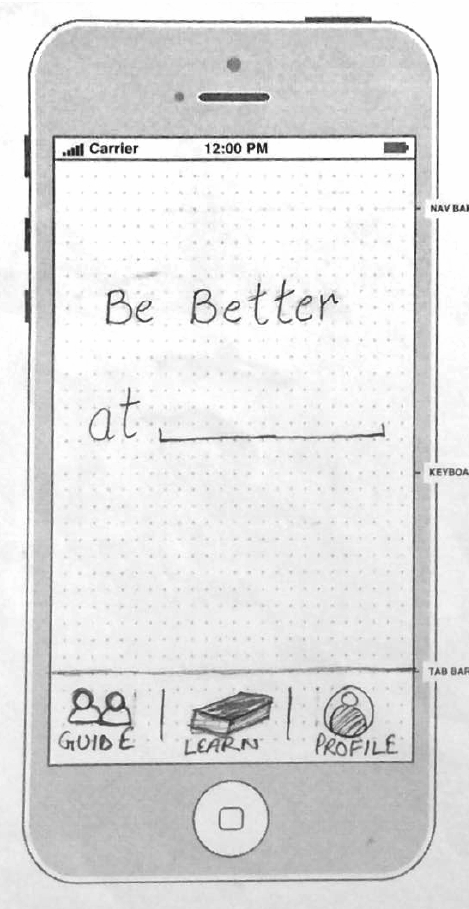 Carrier 12:00 PM
NAV BAR
Be Better
at
KEYBOA
TAB BAR
GUIDE LEARN PROFILE